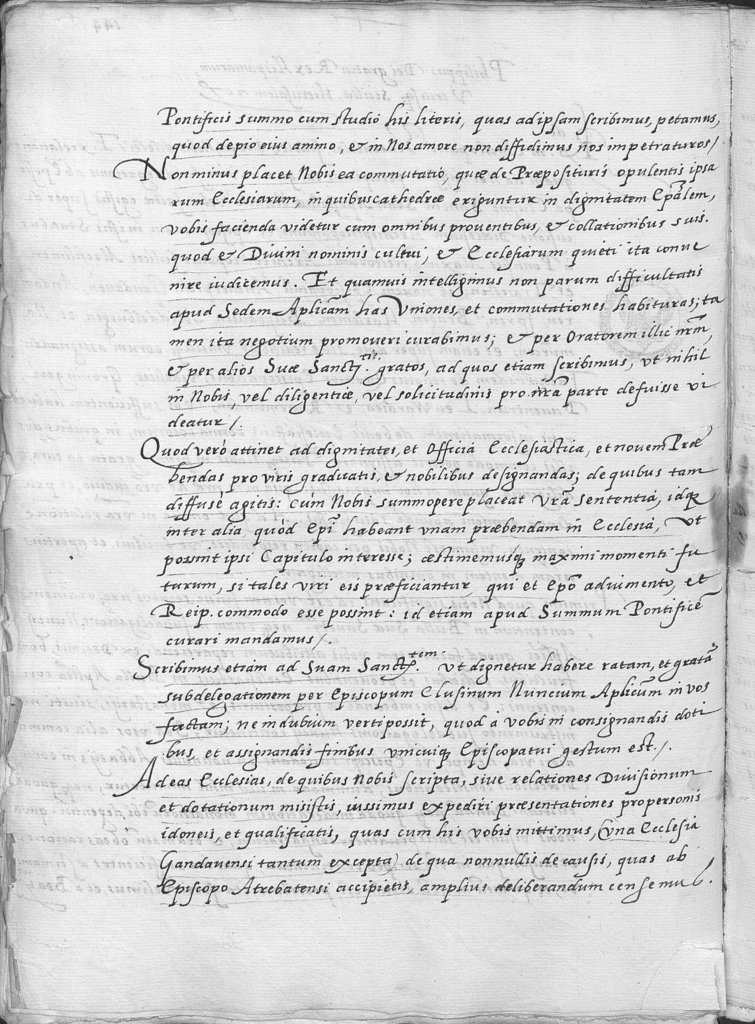 Pontificis summo cum studio his literis, quas ad ipsam scribimus, petamus,
quod de pio eius amino, & in Nos amore non diffidimus nos impetraturos/
Non minus placet Nobis ea commutatio, quæ de Præposituris opulentis ipsa
rum Ecclesiarum, in quibus cathedræ eriguntur in dignitatem Ep̃alem,
vobis facienda videtur cum omnibus proventibus, & collationibus suis.
quod & Divini nominis cultui, & Ecclesiarum quieti ita conve
nire iudicemus. Et quamvis intelligimus non parum difficultatis
apud Sedem Aplicam̃ has Vniones, et commutationes habituras; ta
men ita negotium promoveri curabimus; & per Oratorem illic nrm̃,
& per alios Suæ Sanctj.tis gratos, ad quos etiam scribimus, vt nihil
in Nobis, vel diligentiæ, vel solicitudinis pro nr̃a parte defuisse vi
deatur /.
Quod verò attinet ad dignitates, et Officia Ecclesiastica, et novem Præ
bendas pro viris graduatis, & nobilibus designandas; de quibus tam
diffusè agitis: cùm Nobis summopere placeat vr̃a sententia, idq
inter alia quòd Ep̃i habeant vnam præbendam in Ecclesia, vt
possint ipsi Capitulo interesse; æstimemusq maximi momenti fu
turum, si tales viri eis præficiantur, qui et Ep̃o adiumento, et
Reip. commodo esse possint: id etiam apud Summum Pontificẽ
curari mandamus /.
Scribimus etiam ad Suam Sanctj.tem vt dignetur habere ratam, et gratã
subdelegationem per Episcopum Clusinum Nuncium Aplicũm in vos
factam; ne in dubium verti possit, quod à vobis in consignandis doti
bus, et assignandis finibus vnicuiq Episcopatui gestum est. /.
Ad eas Ecclesias, de quibus Nobis scripta, sive relationes Divisionum
et dotationum misistis, iussimus expediri præsentationes pro personis
idoneis, et qualificatis, quas cum his vobis mittimus, (vna Ecclesia
Gandavensi tantum excepta) de qua nonnullis de causis, quas ab
Episcopo Atrebatensi accipietis, amplius deliberandum censemus.